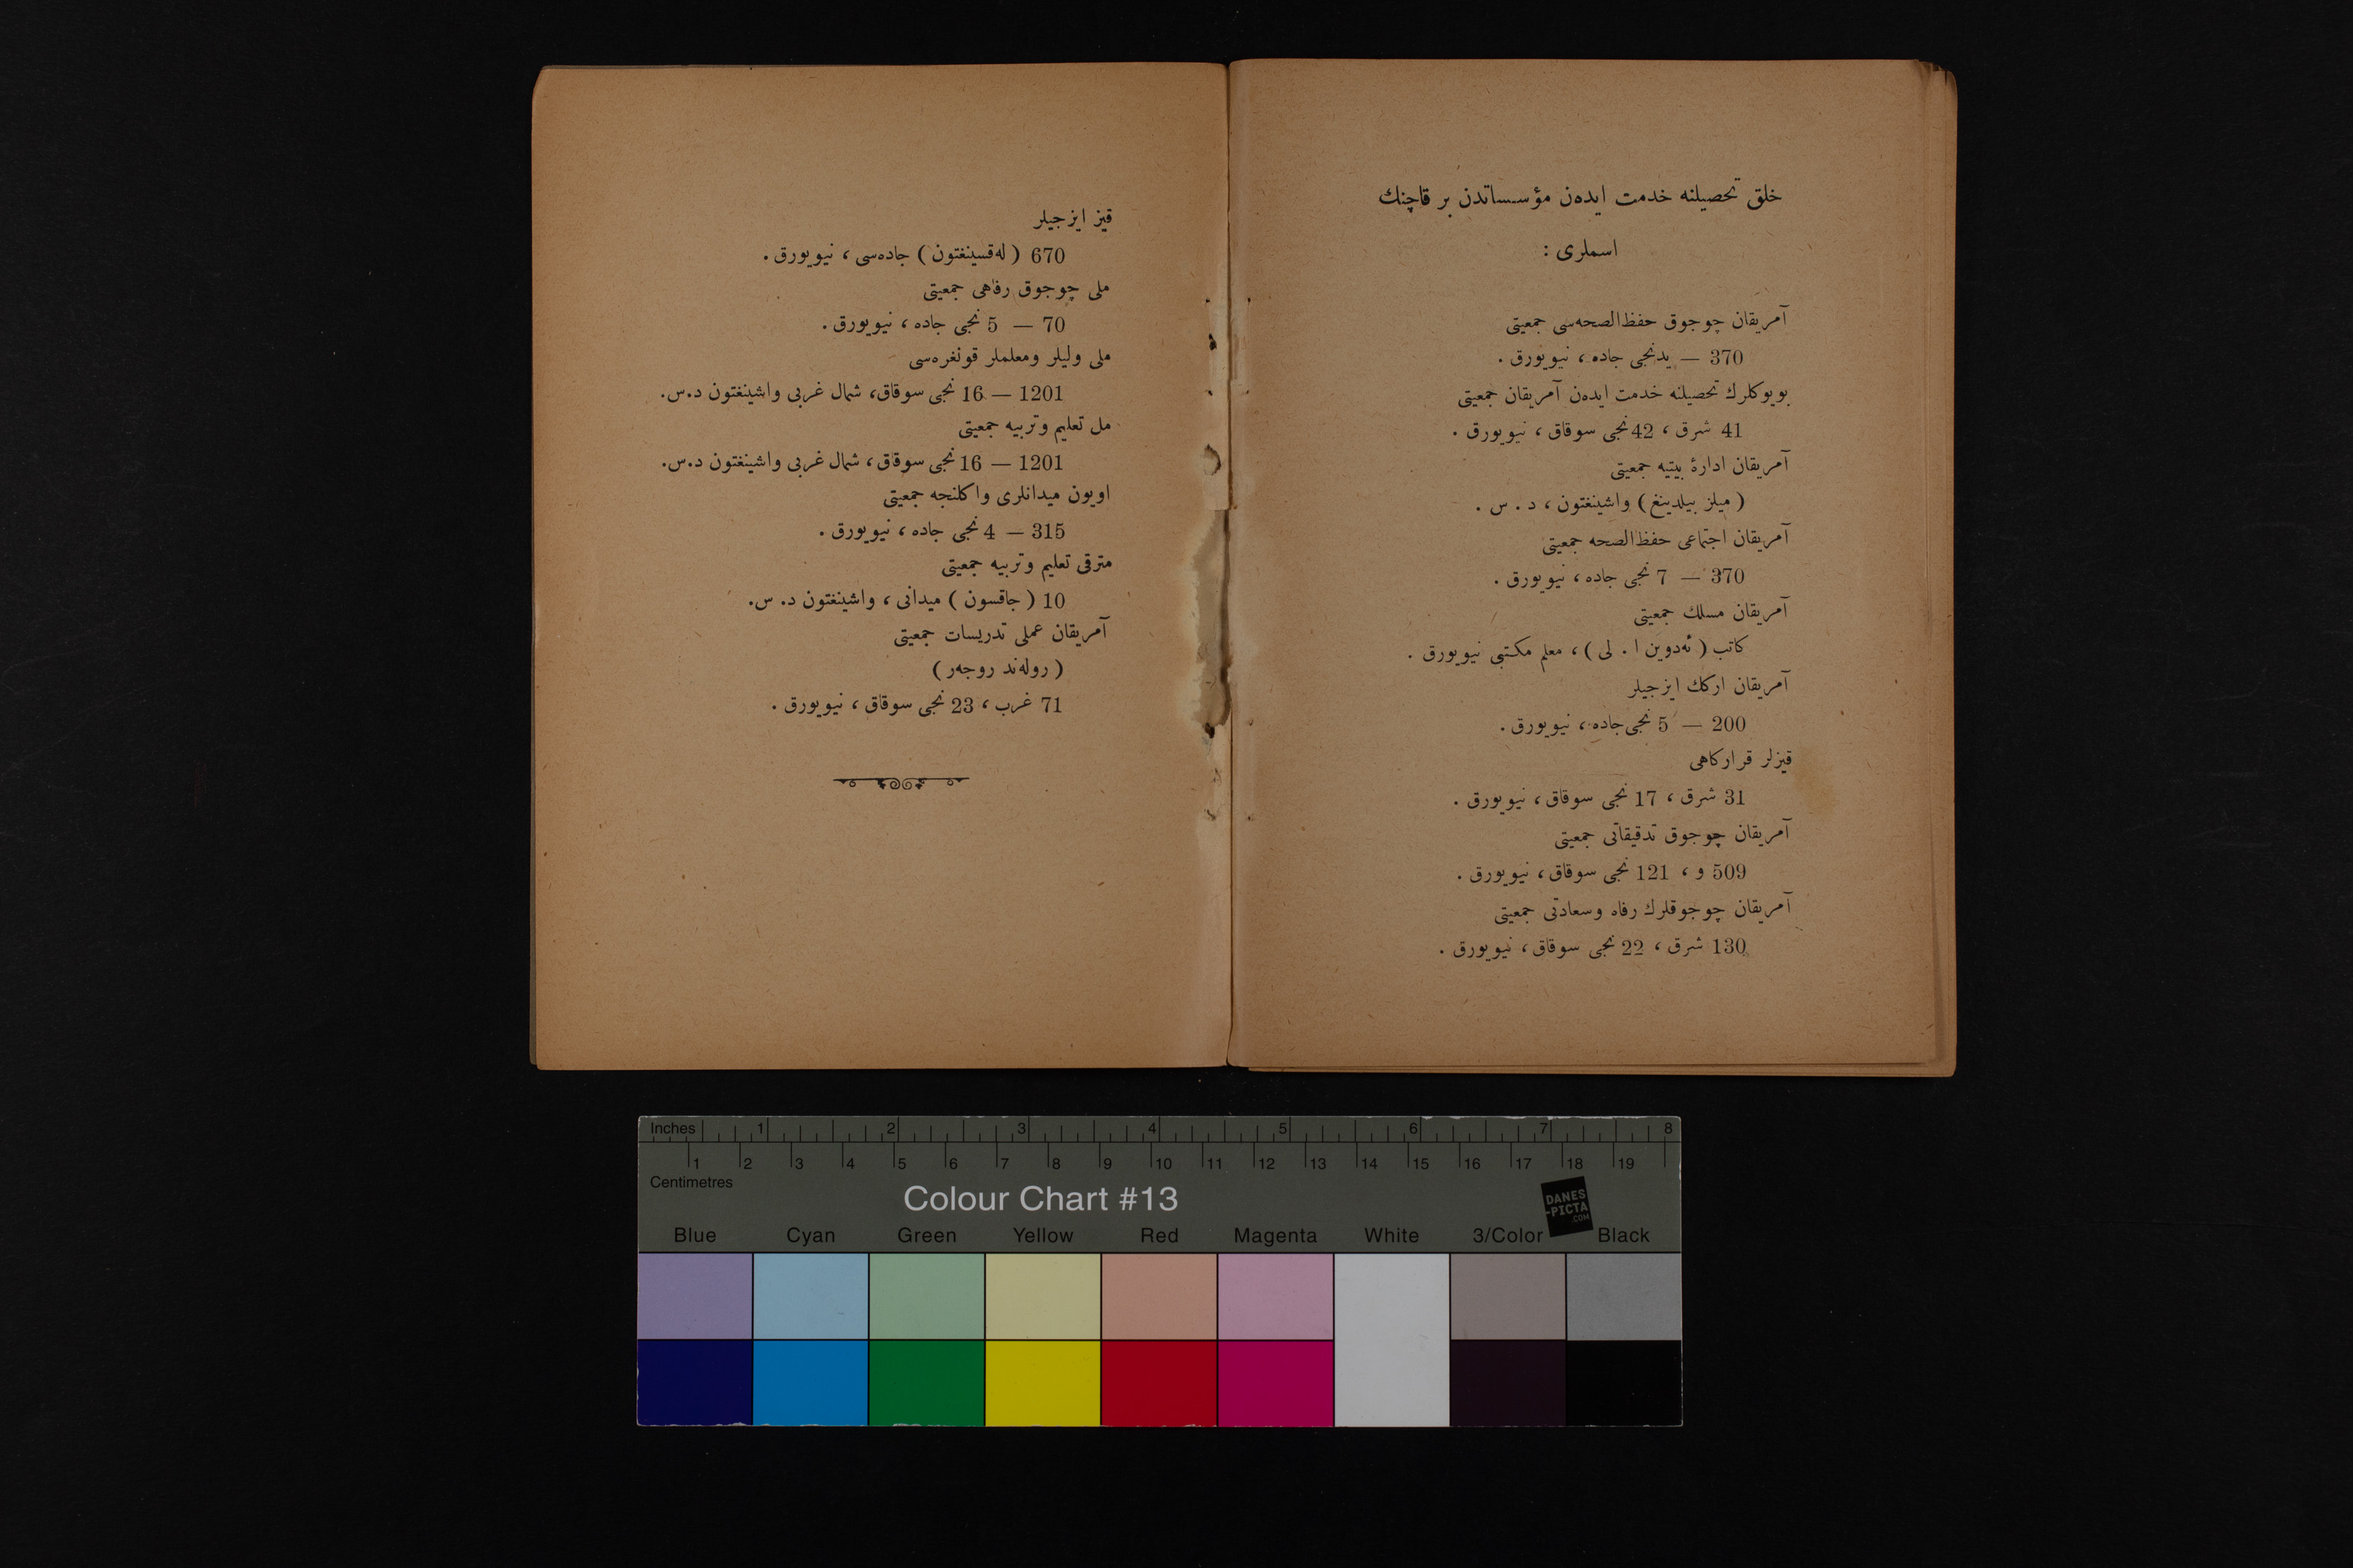 خلق تحصیلنه خدمت ایده‌ن مؤسساتدن بر قاچنك
اسملری :
آمریقان چوجوق حفظ‌الصحه‌سی جمعیتی
370 — یدنجی جاده ، نیویورق .
بویوكلرك تحصیلنه خدمت ایده‌ن آمریقان جمعیتی
41 شرق ، 42 نجی سوقاق ، نیویورق .
آمریقان ادارۀ بیتیه جمعیتی
( میلز بیلدینغ ) واشینغتون ، د . س .
آمریقان اجتماعی حفظ‌الصحه جمعیتی
370 — 7 نجی جاده ، نیویورق .
آمریقان مسلك جمعیتی
كاتب ( ئه‌دوین ا . لی ) ، معلم مكتبی نیویورق .
آمریقان اركك ایزجیلر
200 — 5 نجی جاده ، نیویورق .
قیزلر قراركاهی
31 شرق ، 17 نجی سوقاق ، نیویورق .
آمریقان چوجوق تدقیقاتی جمعیتی
509 و ، 121 نجی سوقاق ، نیویورق .
آمریقان چوجوقلرك رفاه وسعادتی جمعیتی
130 شرق ، 22 نجی سوقاق ، نیویورق .
قیز ایزجیلر
670 ( له‌قسینغتون ) جاده‌سی ، نیویورق .
ملی چوجوق رفاهی جمعیتی
70 — 5 نجی جاده ، نیویورق .
ملی ولیلر ومعلملر قونغره‌سی
1201 — 16 نجی سوقاق، شمال غربی واشینغتون د.س.
مل تعلیم وتربیه جمعیتی
1201 — 16 نجی سوقاق، شمال غربی واشینغتون د.س.
اویون میدانلری واكلنجه جمعیتی
315 — 4 نجی جاده ، نیویورق .
مترقی تعلیم وتربیه جمعیتی
10 ( جاقسون ) میدانی ، واشینغتون د. س.
آمریقان عملی تدریسات جمعیتی
( روله‌ند روجه‌ر )
71 غرب ، 23 نجی سوقاق ، نیویورق .
Inches 1 2 3 4 5 6 7 8
1 2 3 4 5 6 7 8 9 10 11 12 13 14 15 16 17 18 19
Centimetres
Colour Chart #13
DANES
-PICTA
.COM
Blue Cyan Green Yellow Red Magenta White 3/Color Black